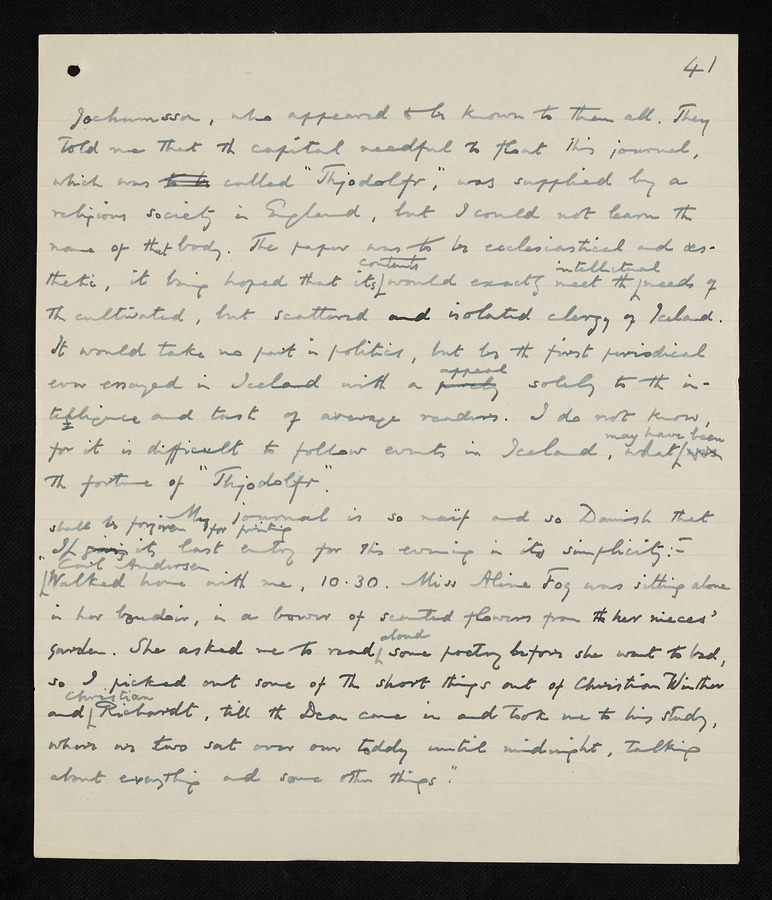 41
Jochumsson, who appeared to be known to them all. They
told me that the capital needful to float this journal,
which was to be called "Thjodolfr," was supplied by a
religious society in England, but I could not learn the
name of that body. The paper was to be ecclesiastical and æs-
contents
intellectual
thetic, it being hoped that its would exactly meet the needs of
the cultivated, but scattered and isolated clergy of Iceland.
It would take no part in politics, but be the first periodical
appeal
ever essayed in Iceland with a purely solely to the in-
telligence and taste of average readers. I do not know,
may have been
for it is difficult to follow events in Iceland, what was
the fortune of "Thjodolfr".
My journal is so naïf and so Danish that
shall be forgiven for printing
If its last entry for this evening in its simplicity:-
Carl Andersen
"Walked home with me, 10.30. Miss Aline Fog was sitting alone
in her boudoir, in a bower of scented flowers from her nieces'
aloud
garden. She asked me to read some poetry before she went to bed,
so I picked out some of the short things out of Christian Winther
Christian
and Richardt, till the Dean came in and took me to his study,
where we two sat over our toddy until midnight, talking
about everything and some other things".